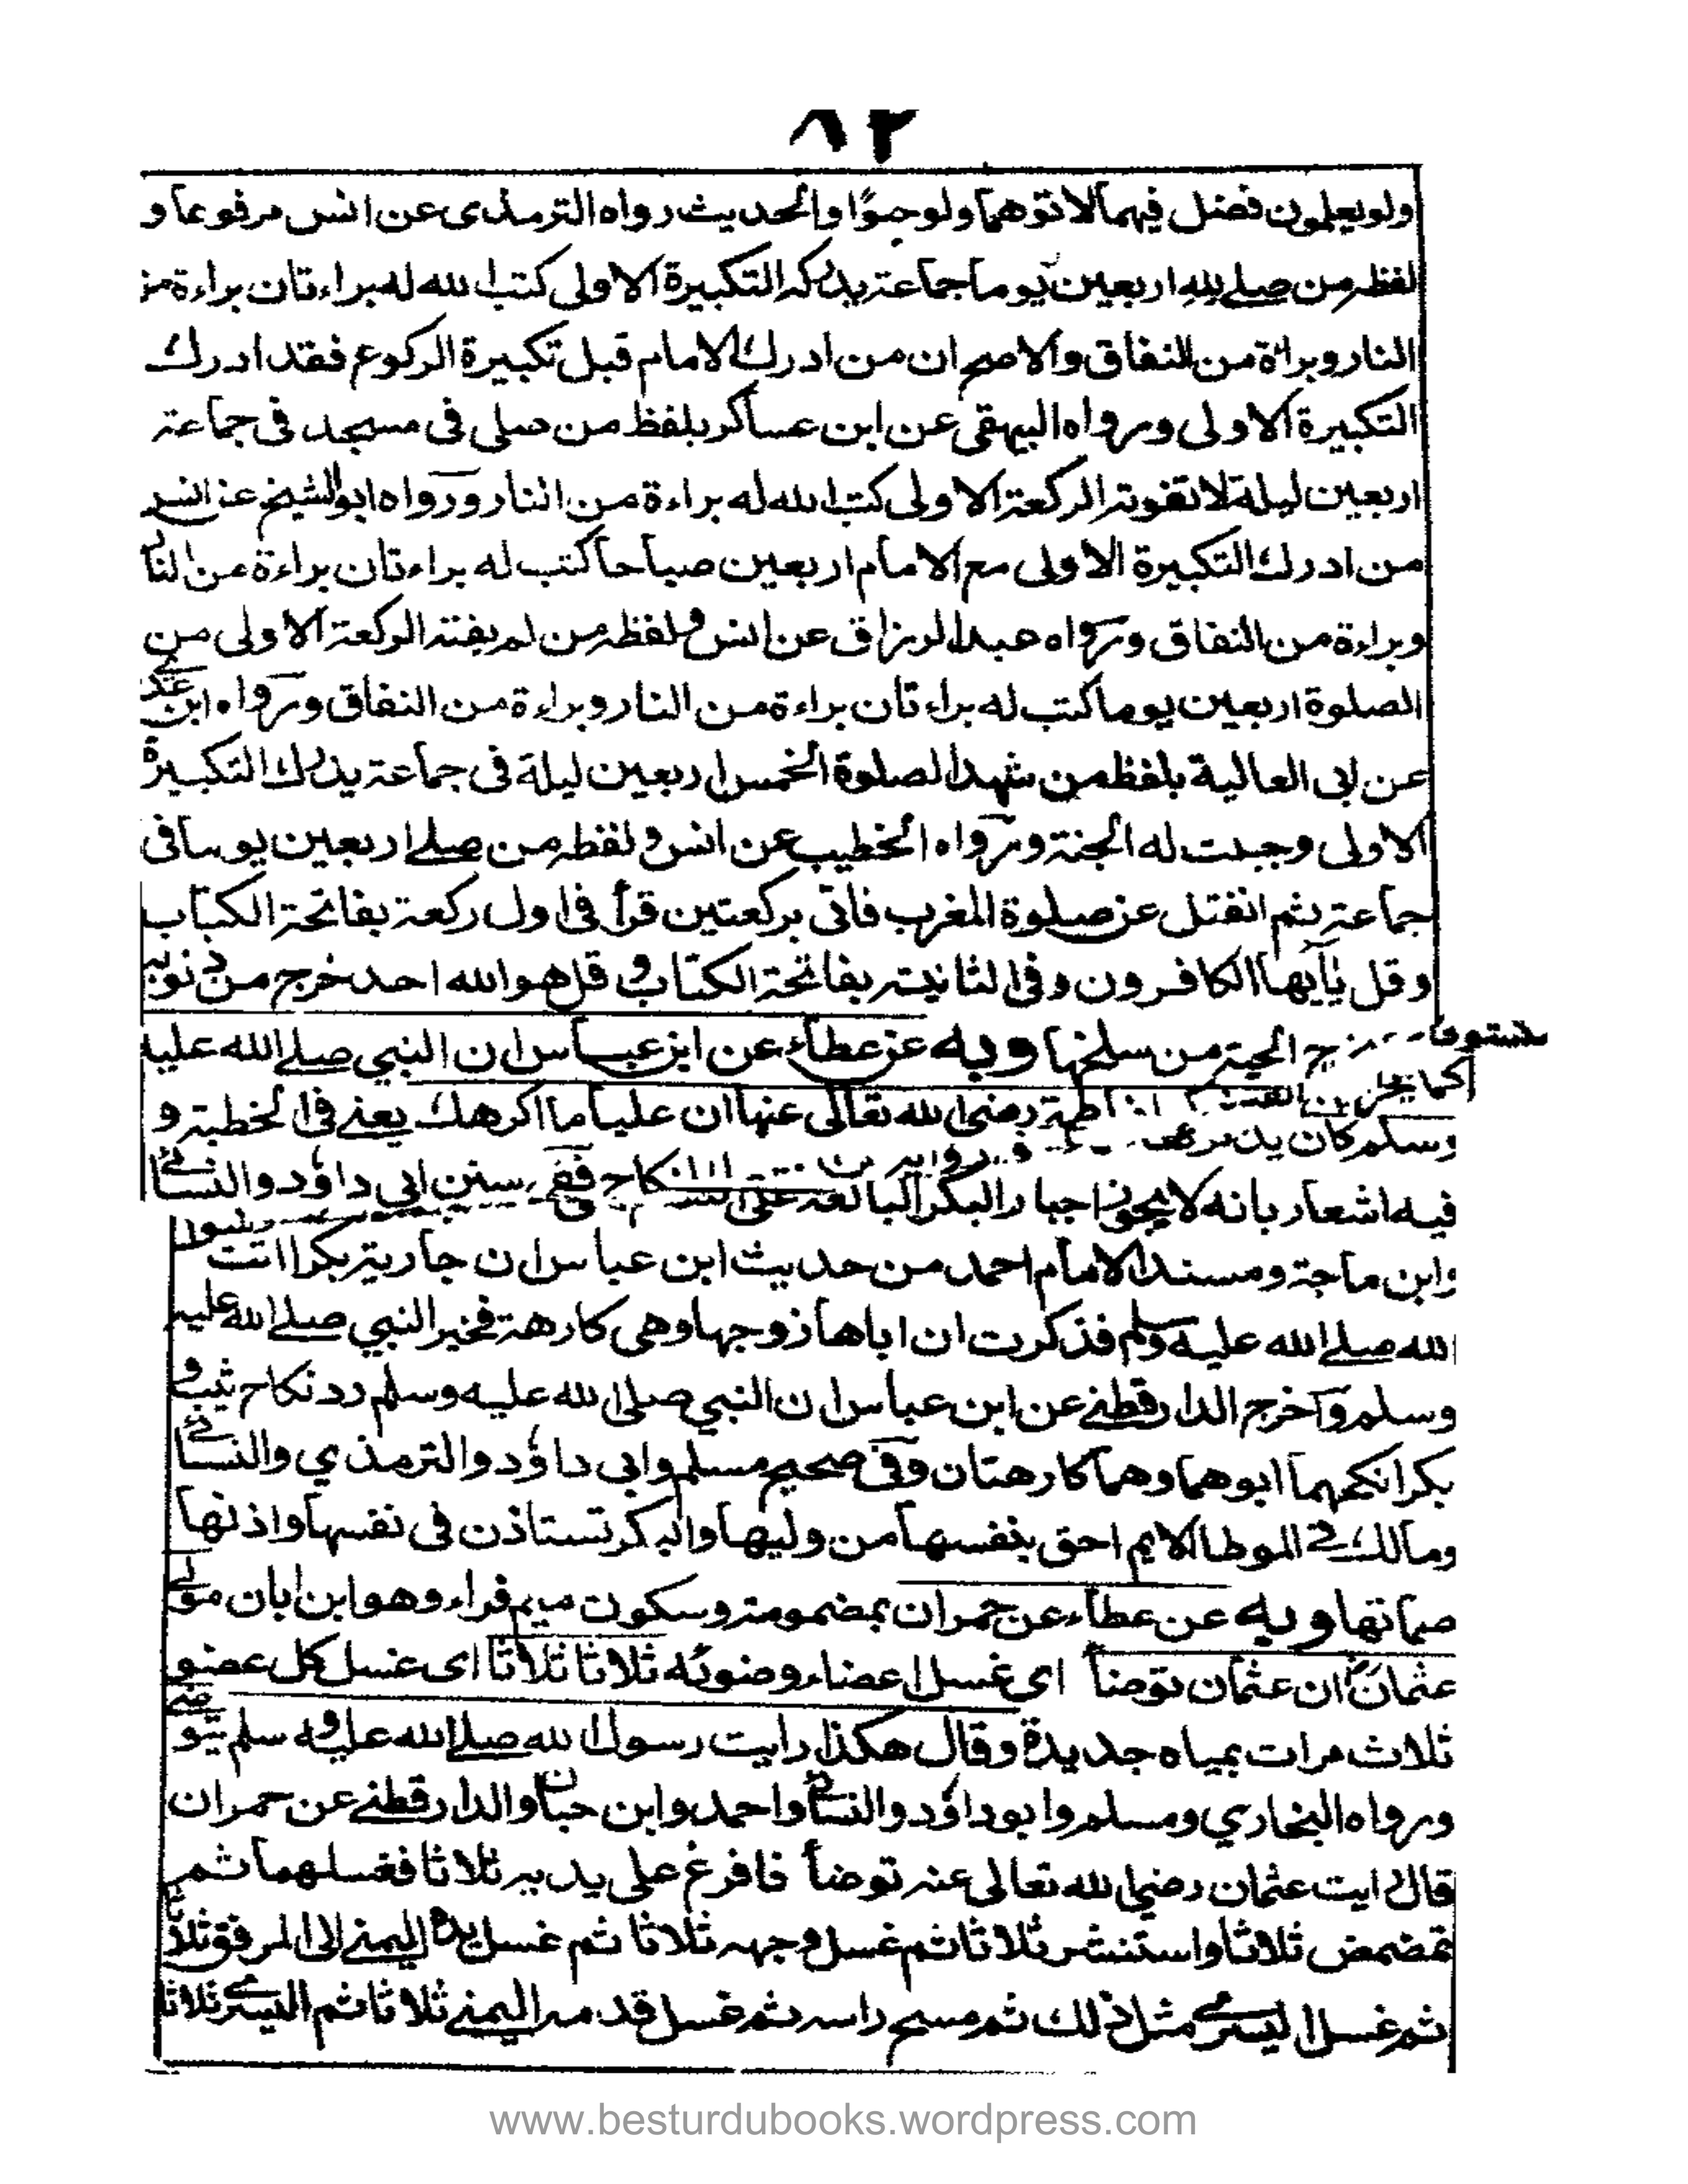 ٨٢
ولو يعلمون فضل فيهما لاتوهما ولو حبوًا والحديث رواه الترمذى عن انس مرفوعا و
لفظه من صلے لله اربعين يوما جماعة يدرك التكبيرة الاولى كتب الله له براءتان براءة من
النار وبراءة من النفاق والاصح ان من ادرك الامام قبل تكبيرة الركوع فقد ادرك
التكبيرة الاولى ورواه البيهقى عن ابن عساكر بلفظ من صلى فى مسجد فى جماعة
اربعين ليلة لا تفوته الركعة الاولى كتب الله له براءة من النار ورواه ابو الشيخ عن انس
من ادرك التكبيرة الاولى مع الامام اربعين صباحا كتب له براءتان براءة من النار
وبراءة من النفاق ورواه عبد الرزاق عن انس ولفظه من لم يفته الركعة الاولى من
الصلوة اربعين يوما كتب له براءتان براءة من النار وبراءة من النفاق ورواه ابن عدے
عن ابى العالية بلفظ من شهد الصلوة الخمس اربعين ليلة فى جماعة يدرك التكبيرة
الاولى وجبت له الجنة ورواه الخطيب عن انس ولفظه من صلے اربعين يوما فى
جماعة ثم انفتل عن صلوة المغرب فاتى بركعتين قرأ فى اول ركعة بفاتحة الكتاب
وقل يآيها الكافرون وفى الثانية بفاتحة الكتاب و قل هو الله احد خرج من ذنوبه
الحية من سلخها وبه عن عطاء عن ابن عباس ان النبي صلے الله عليه
كما يخرج رضى الله تعالى عنها ان عليا ما اكرهك يعنے فى الخطبة و
وسلم كان يذكر
فيه اشعار بانه لا يجوز اجبار البكر البالغة على النكاح ففى سنن ابي داؤد والنسائے
وابن ماجة ومسند الامام احمد من حديث ابن عباس ان جارية بكرا اتت رسول
الله صلے الله عليه وسلم فذكرت ان اباها زوجها وهى كارهة فخير النبي صلے الله عليه
وسلم وآخرج الدارقطنے عن ابن عباس ان النبي صلى الله عليه وسلم رد نكاح ثيب و
بكر انكحهما ابوهما وهما كارهتان وفى صحيح مسلم وابى داؤد والترمذي والنسائے
ومالك فے الموطا الايم احق بنفسها من وليها والبكر تستاذن فى نفسها واذنها
صماتها وبه عن عطاء عن حمران بمضمومة وسكون ميم فراء وهو ابن ابان مولے
عثمان ان عثمان توضأ اى غسل اعضاء وضوئه ثلاثا ثلاثا اى غسل كل عضو
ثلاث مرات بمياه جديدة وقال هكذا رايت رسول الله صلے الله عليه و سلم يتوضے
ورواه البخاري ومسلم وابو داؤد والنسائے واحمد وابن حبان والدارقطنے عن حمران
قال رايت عثمان رضى الله تعالى عنه توضأ فافرغ على يديه ثلاثا فغسلهما ثم
تمضمض ثلاثا واستنشر ثلاثا ثم غسل وجهه ثلاثا ثم غسل يده اليمنے الى المرفق ثلاثا
ثم غسل اليسرے مثل ذلك ثم مسح راسه ثم غسل قدمه اليمنے ثلاثا ثم اليسرے ثلاثا
www.besturdubooks.wordpress.com